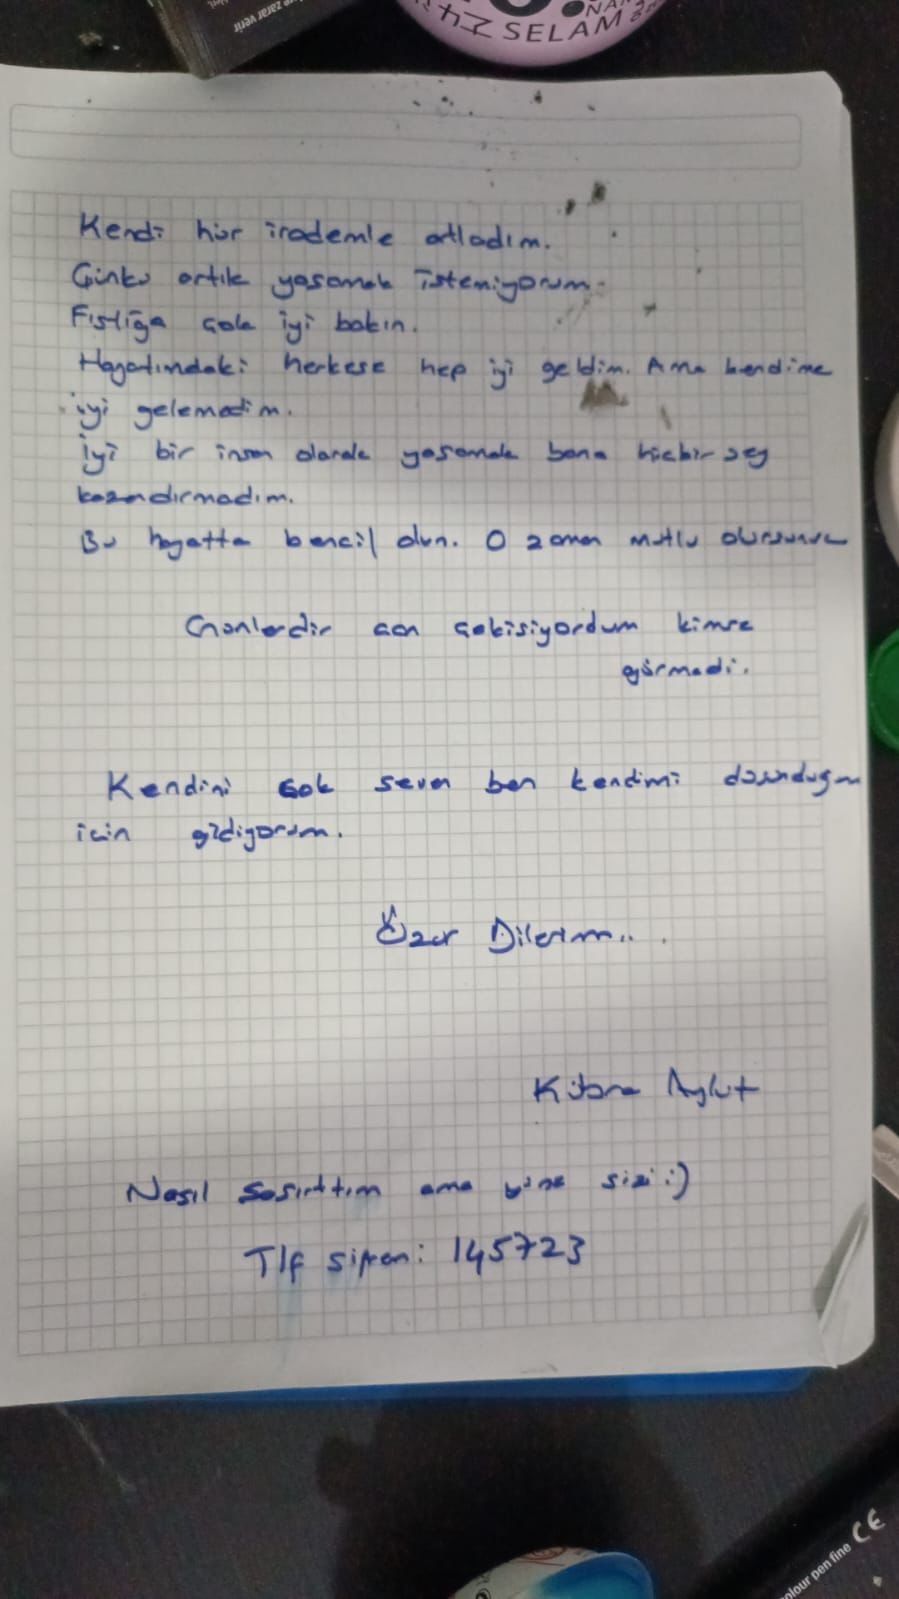 zarar verir
SELAM
Kendi hür irademle atladım.
Çünkü artık yaşamak istemiyorum.
Fıstığa çok iyi bakın.
Hayatımdaki herkese hep iyi geldim. Ama kendime
iyi gelemedim.
İyi bir insan olarak yaşamak bana hiçbir şey
kazandırmadım.
Bu hayatta bencil olun. O zaman mutlu olursunuz
Günlerdir can çekişiyordum kimse
görmedi.
Kendini çok seven ben kendimi düşündüğüm
için gidiyorum.
Özür Dilerim...
Kübra Aykut
Nasıl şaşırttım ama yine sizi :)
Tlf şifrem: 145723
colour pen fine CE